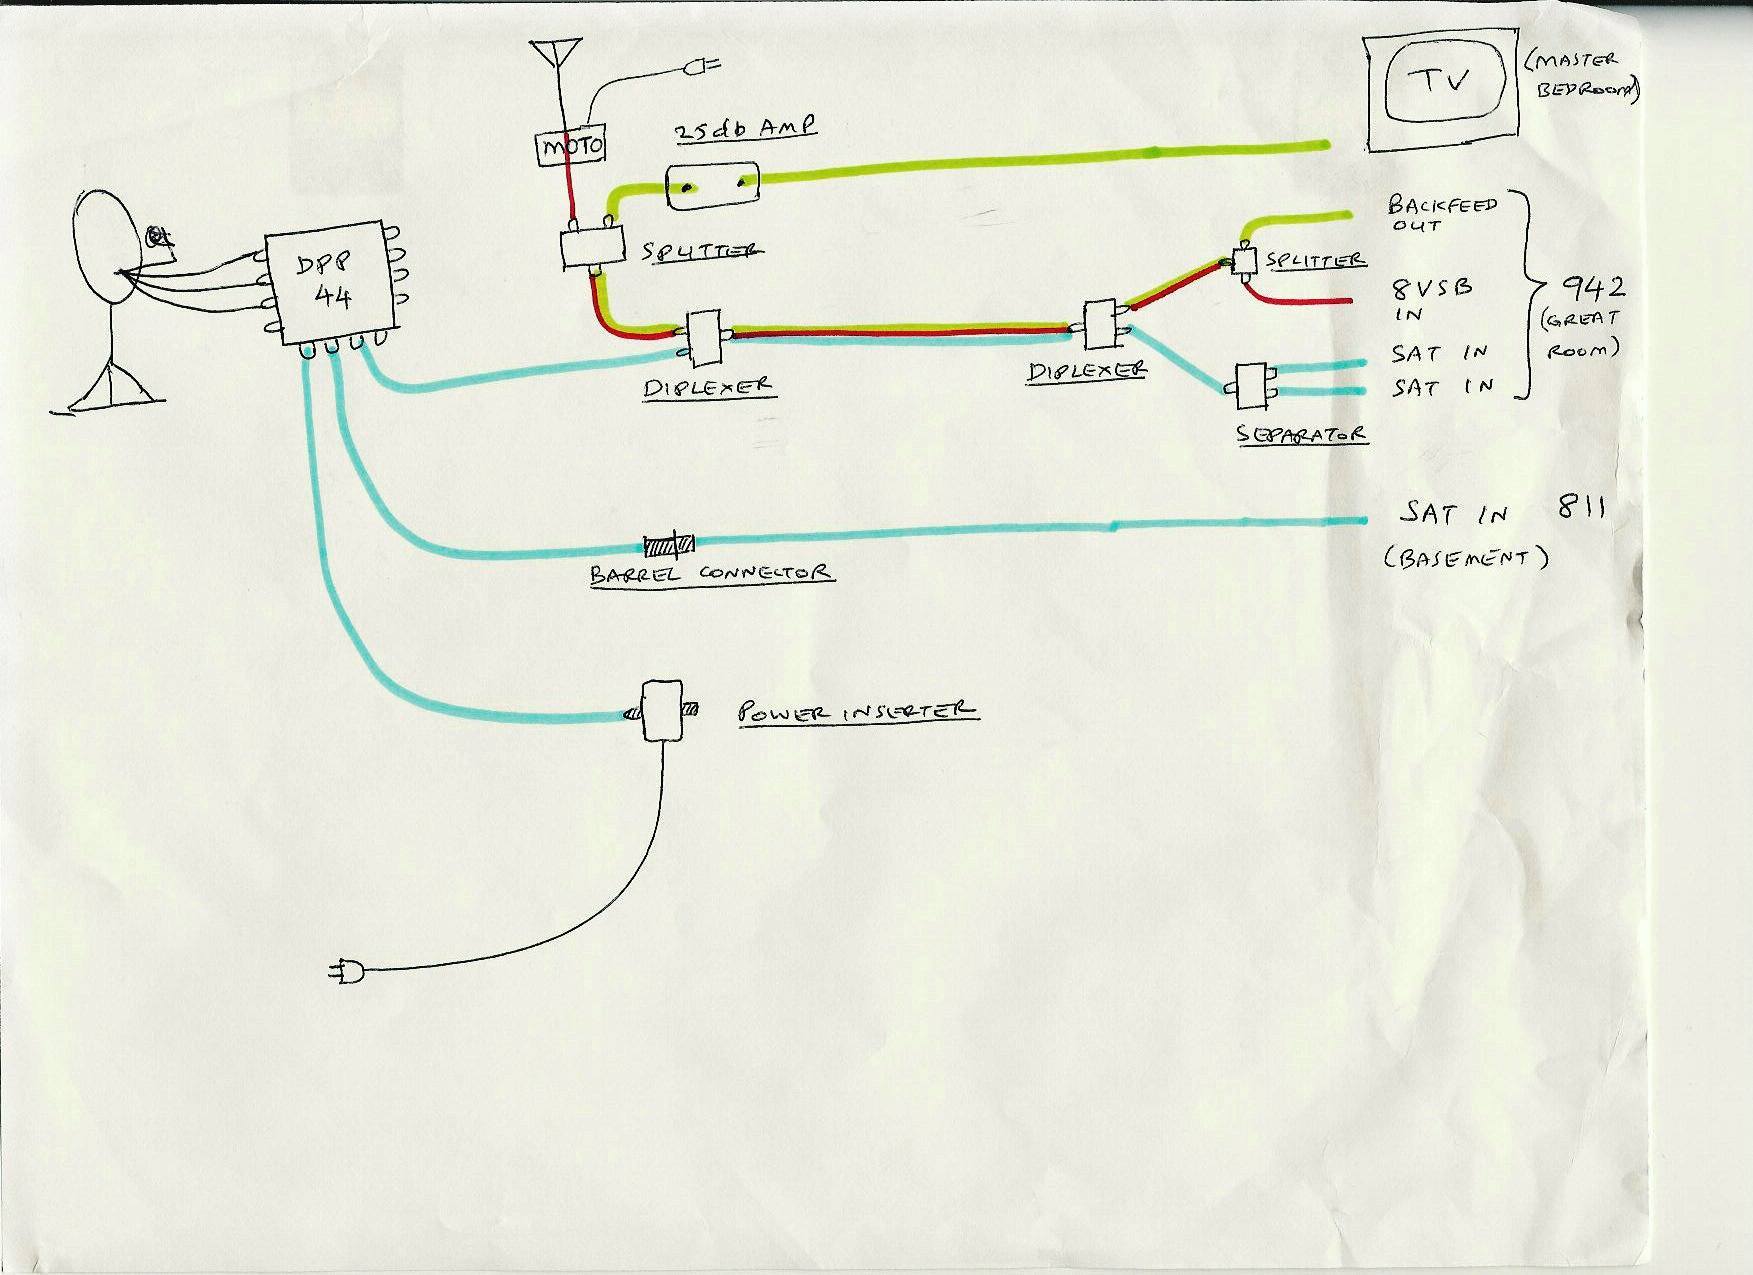 TV
(MASTER
BEDROOM)
25db AMP
MOTO
SPLITTER
DPP
44
BACKFEED
OUT
SPLITTER
8VSB
IN
942
(GREAT
ROOM)
SAT IN
SAT IN
DIPLEXER
DIPLEXER
SEPARATOR
SAT IN 811
(BASEMENT)
BARREL CONNECTOR
POWER INSERTER